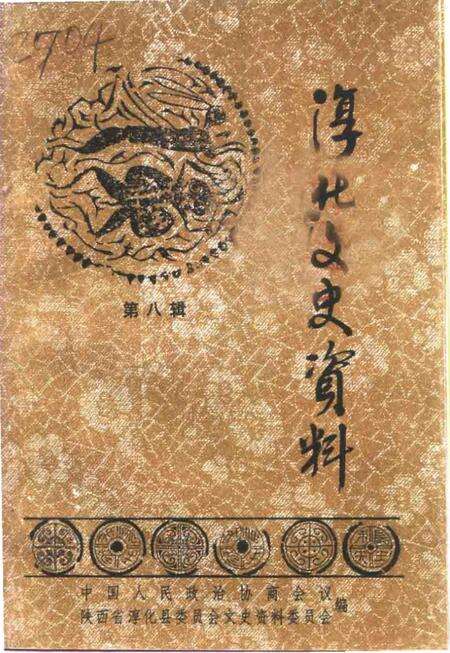 2704
淳化文史资料
第八辑
中国人民政治协商会议
陕西省淳化县委员会文史资料委员会 编